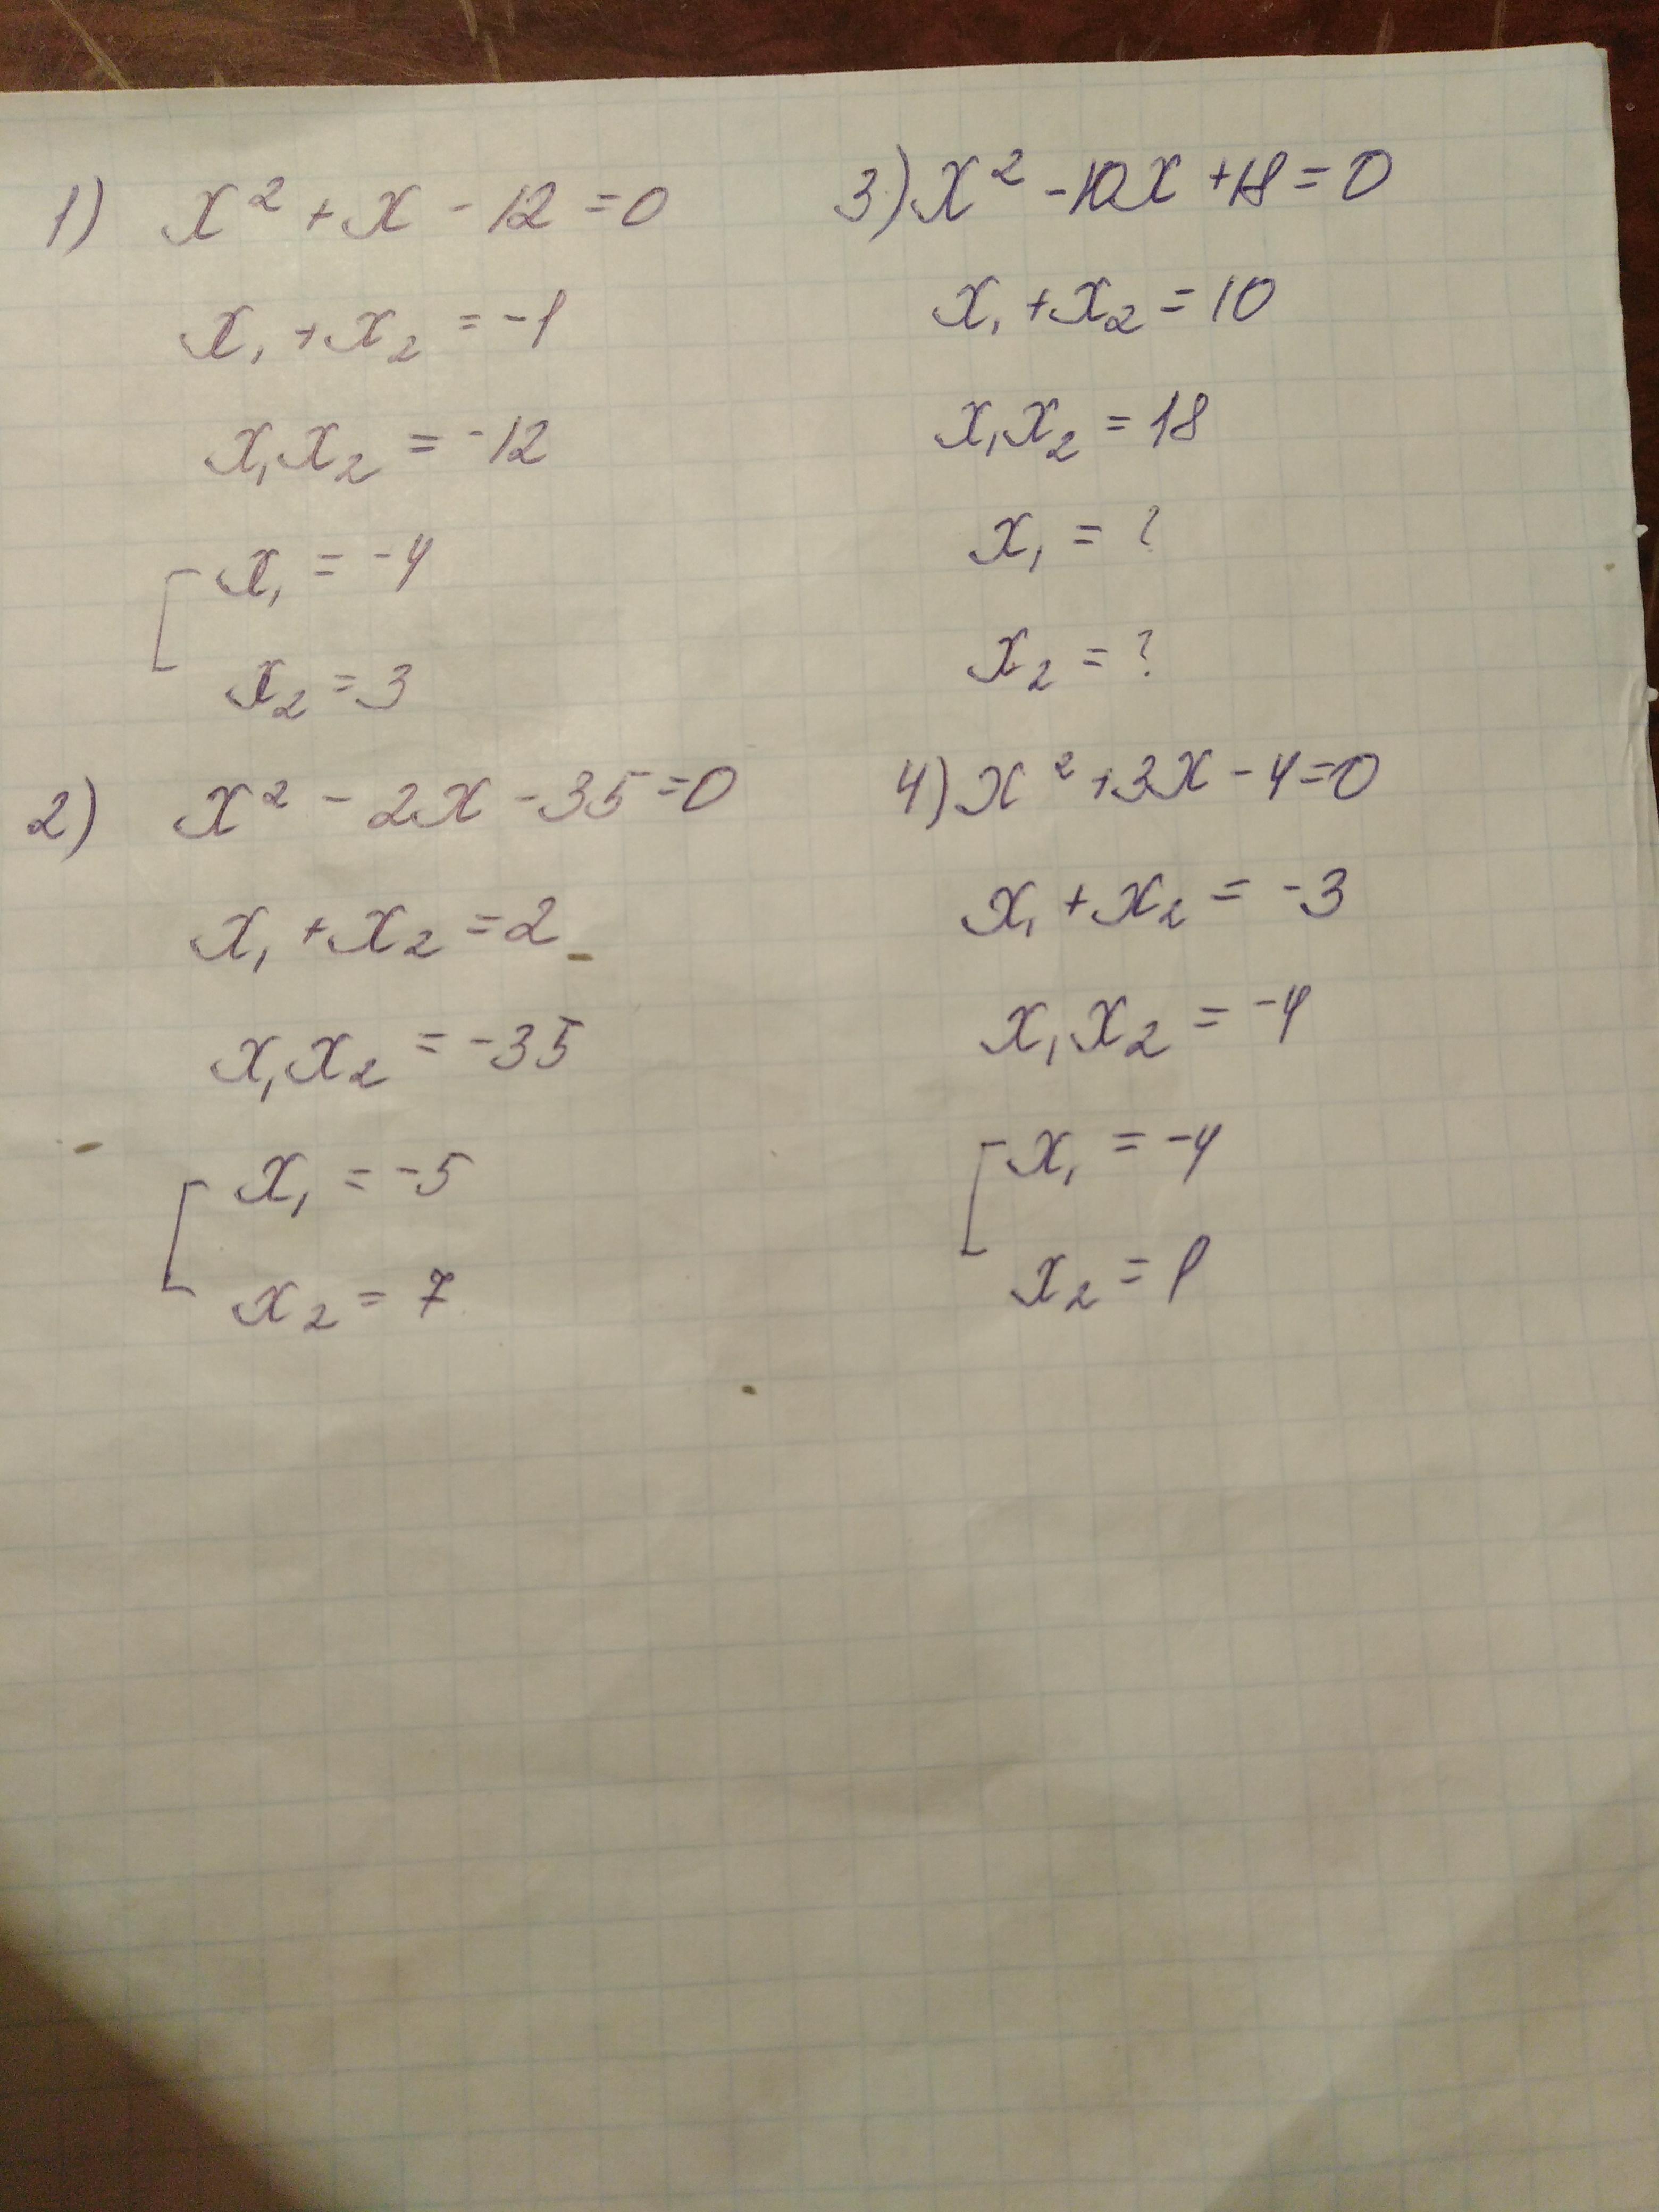 1) x² + x - 12 = 0
x₁ + x₂ = -1
x₁x₂ = -12
x₁ = -4
x₂ = 3
2) x² - 2x - 35 = 0
x₁ + x₂ = 2
x₁x₂ = -35
x₁ = -5
x₂ = 7
3) x² - 10x + 18 = 0
x₁ + x₂ = 10
x₁x₂ = 18
x₁ = ?
x₂ = ?
4) x² + 3x - 4 = 0
x₁ + x₂ = -3
x₁x₂ = -4
x₁ = -4
x₂ = 1